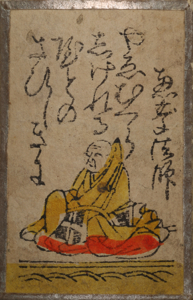 恵慶法師
やへむくら
しけれる
やとの
さひしきに